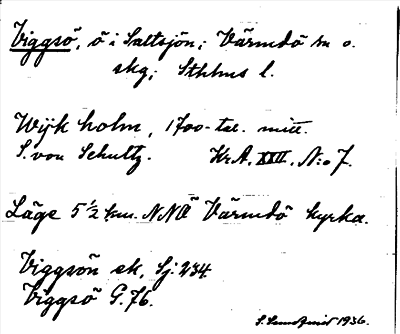 Viggsö, ö i Saltsjön; Värmdö sn o.
skg; Sthlms l.
Wijk holm, 1700-tal. mitt.
S. von Schultz. Kr.A. XXII. N:o 7.
Läge 5 1/2 km. NNÖ Värmdö kyrka.
Viggsön ek, Sj. 234.
Viggsö G. 76.
1936.